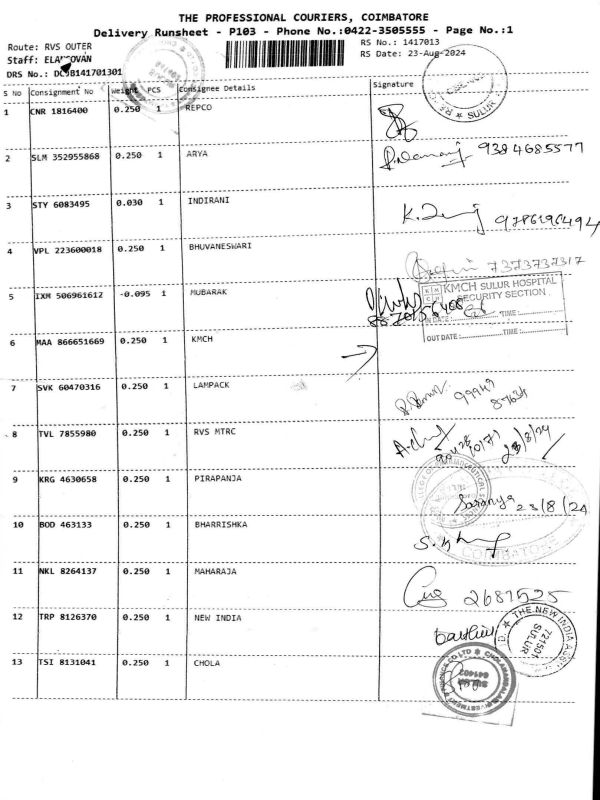 THE PROFESSIONAL COURIERS, COIMBATORE
Delivery Runsheet - P103 - Phone No.:0422-3505555 - Page No.:1
Route: RVS OUTER
RS No.: 1417013
Staff: ELANGOVAN
RS Date: 23-Aug-2024
DRS No.: DCJB141701301
S No Consignment No Weight PCS Consignee Details Signature
SULUR
1 CNR 1816400 0.250 1 REPCO
2 SLM 352955868 0.250 1 ARYA 9384685577
3 STY 6083495 0.030 1 INDIRANI 9786196494
4 VPL 223600018 0.250 1 BHUVANESWARI 7373737317
KMCH SULUR HOSPITAL
SECURITY SECTION
5 IXM 506961612 -0.095 1 MUBARAK
IN DATE: TIME:
OUT DATE: TIME:
6 MAA 866651669 0.250 1 KMCH
7 SVK 60470316 0.250 1 LAMPACK 99949
87634
8 TVL 7855980 0.250 1 RVS MTRC
23/8/24
9 KRG 4630658 0.250 1 PIRAPANJA Saranya 23/8/24
10 BOD 463133 0.250 1 BHARRISHKA
COIMBATORE
11 NKL 8264137 0.250 1 MAHARAJA 2687525
12 TRP 8126370 0.250 1 NEW INDIA
THE NEW INDIA ASS
721501
SULUR
13 TSI 8131041 0.250 1 CHOLA
SULUR
641402